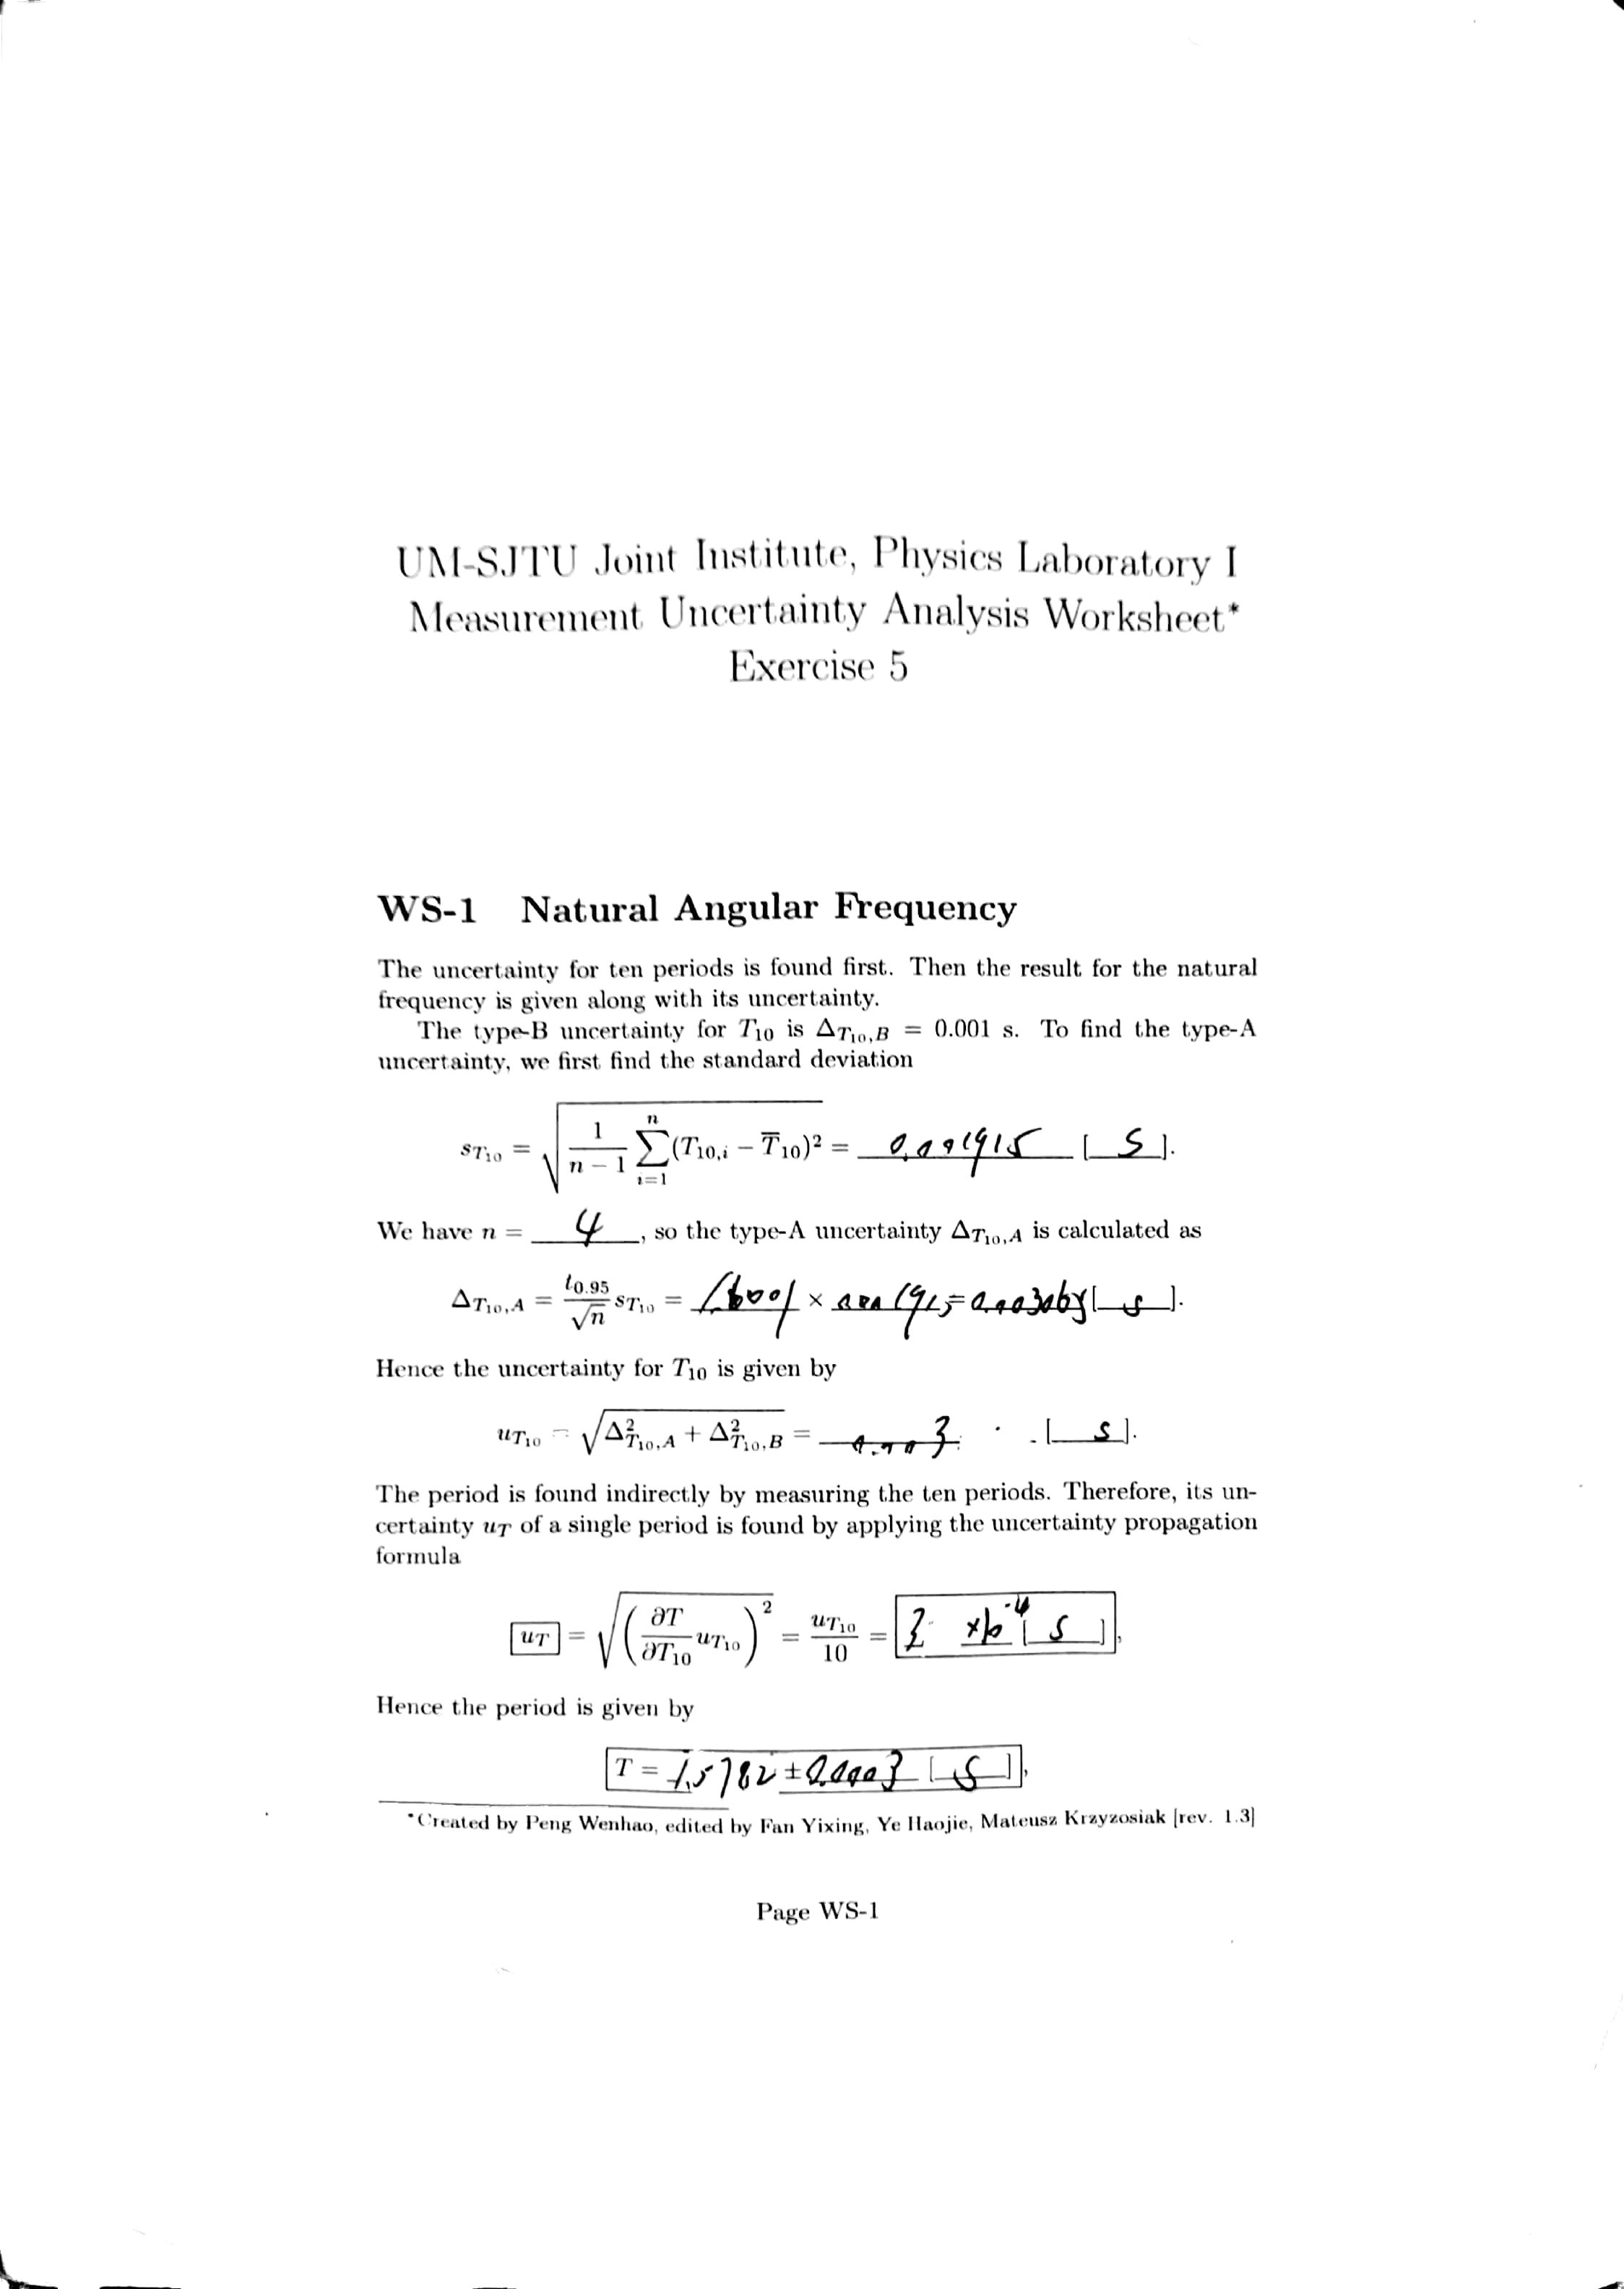 UM-SJTU Joint Institute, Physics Laboratory I
Measurement Uncertainty Analysis Worksheet*
Exercise 5
WS-1 Natural Angular Frequency
The uncertainty for ten periods is found first. Then the result for the natural
frequency is given along with its uncertainty.
The type-B uncertainty for T₁₀ is Δ_{T₁₀,B} = 0.001 s. To find the type-A
uncertainty, we first find the standard deviation
s_{T₁₀} = √(1/(n − 1) ∑_{i=1}^{n} (T_{10,i} − T̅₁₀)²) = 0.001915 [ S ].
We have n = 4, so the type-A uncertainty Δ_{T₁₀,A} is calculated as
Δ_{T₁₀,A} = t_{0.95}/√n s_{T₁₀} = × = [ s ].
Hence the uncertainty for T₁₀ is given by
u_{T₁₀} = √(Δ²_{T₁₀,A} + Δ²_{T₁₀,B}) = 0.003 [ s ].
The period is found indirectly by measuring the ten periods. Therefore, its un-
certainty u_T of a single period is found by applying the uncertainty propagation
formula
u_T = √((∂T/∂T₁₀ u_{T₁₀})²) = u_{T₁₀}/10 = 3 ×10⁻⁴ [ s ],
Hence the period is given by
T = 1.5782 ± 0.0003 [ s ],
*Created by Peng Wenhao, edited by Fan Yixing, Ye Haojie, Mateusz Krzyzosiak [rev. 1.3]
Page WS-1